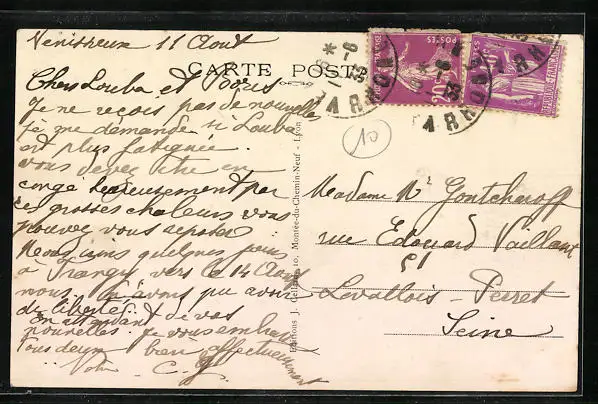 Venissieux 11 Aout
CARTE POSTALE
Chers Louba et
Je ne reçois pas de nouvelles
je me demande si Louba
est plus fatiguée.
vous devez être en
congé heureusement par
ces grosses chaleurs vous
pouvez vous reposer
Nous irons quelques jours
à Frangy vers le 14 Aout
nous avons pu avoir
de liberté.
En attendant de vos
nouvelles. Je vous embrasse
Tous deux bien affectueusement
Votre
10
POSTES
POSTES
REPUBLIQUE FRANÇAISE
Editions J. Cellard, Montée-du-Chemin-Neuf - Lyon
Madame Nr Gontcharoff
rue Edouard Vaillant
51
Levallois-Perret
Seine